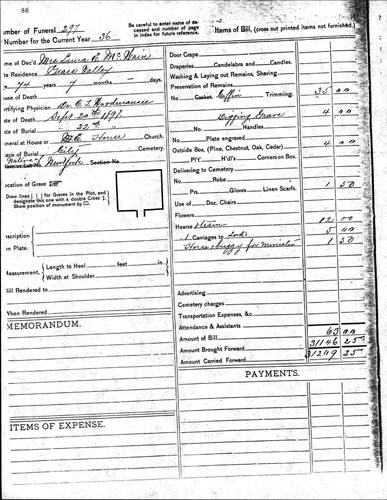 88
umber of Funeral 297
Number for the Current Year 36
Be carefu to enter name of de-
ceased and number of page
in index for future reference.
Items of Bill, (cross out printed items not furnished.)
me of Dec'd Mrs Laura C. McWain
te Residence Grass Valley
e 74 years 7 months — days.
use of Death
ertifying Physician Dr. C. S. Hardmance
te of Death Sept 20th 1891.
te of Burial " 22nd "
neral at House or House Church.
ace of Burial City Cemetery.
Native of New York Section No.
ocation of Grave
Draw lines for Graves in the Plot, and
designate this one with a double Cross
Show position of monument by
nscription
on Plate.
Measurement.
Length to Heel feet in.
Width at Shoulder "
ill Rendered to
When Rendered
MEMORANDUM.
ITEMS OF EXPENSE.
Door Crape
Draperies Candelabra and Candles.
Washing & Laying out Remains, Shaving
Preservation of Remains
No. Casket, Coffin Trimming. 35 00
Digging Grave 4 00
No. Handles
Plate engraved
Outside Box, (Pine, Chestnut, Oak, Cedar) 4 00
PlY H'd's Corners on Box.
Delivering to Cemetery
No. Robe
Prs. Gloves Linen Scarfs. 1 50
Use of Doz. Chairs
Flowers
Hearse & team 12 00
1 Carriages to Lord's 5 00
Horse & buggy for Minister 1 50
Advertising
Cemetery charges
Transportation Expenses, &c.
Attendance & Assistants
Amount of Bill 63 00
Amount Brought Forward 31146 25
Amount Carried Forward 31209 25
PAYMENTS.